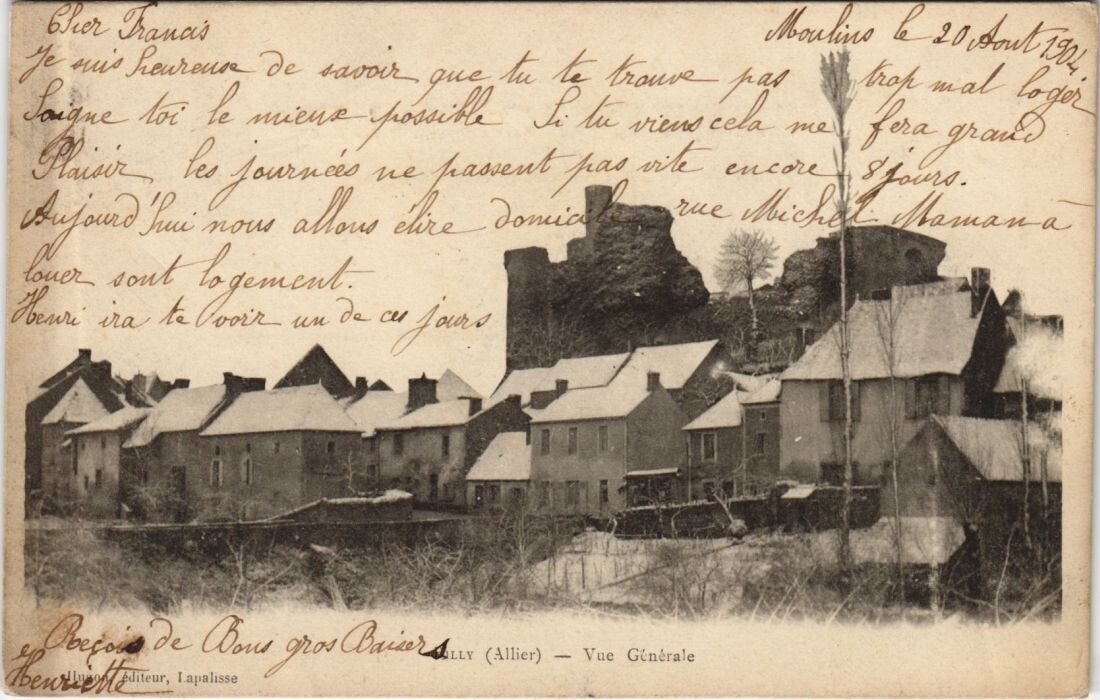 Moulins le 20 Aout 1904
Cher Francis
Je suis heureuse de savoir que tu te trouve pas trop mal loger
Soigne toi le mieux possible Si tu viens cela me fera grand
Plaisir les journées ne passent pas vite encore 8 jours.
Aujourd'hui nous allons élire domicile rue Michel Maman à
louer sont logement.
Henri ira te voir un de ces jours
Reçois de Bons gros Baisers
Henriette
LLY (Allier) — Vue Générale
Hugon, éditeur, Lapalisse